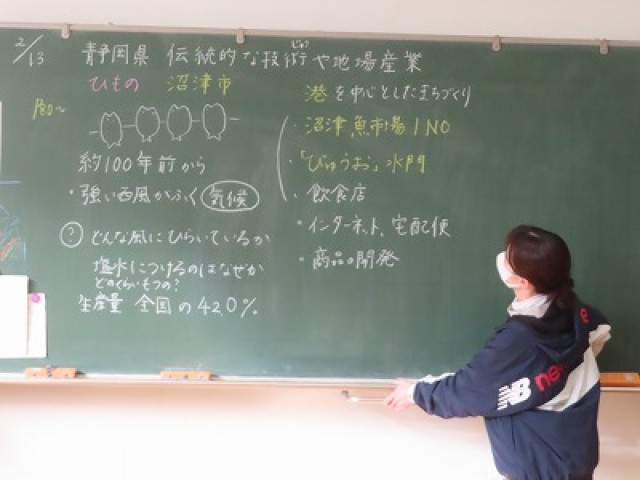 2/13 静岡県 伝統的な技術や地場産業
じゅつ
ひもの 沼津市
P80~
約100年前から
・強い西風がふく 気候
? どんな風にひらいているか
塩水につけるのはなぜか
どのくらいもつの?
生産量 全国の42.0%
港を中心としたまちづくり
・沼津魚市場INO
・「びゅうお」水門
・飲食店
・インターネット、宅配便
・商品の開発
NB ne